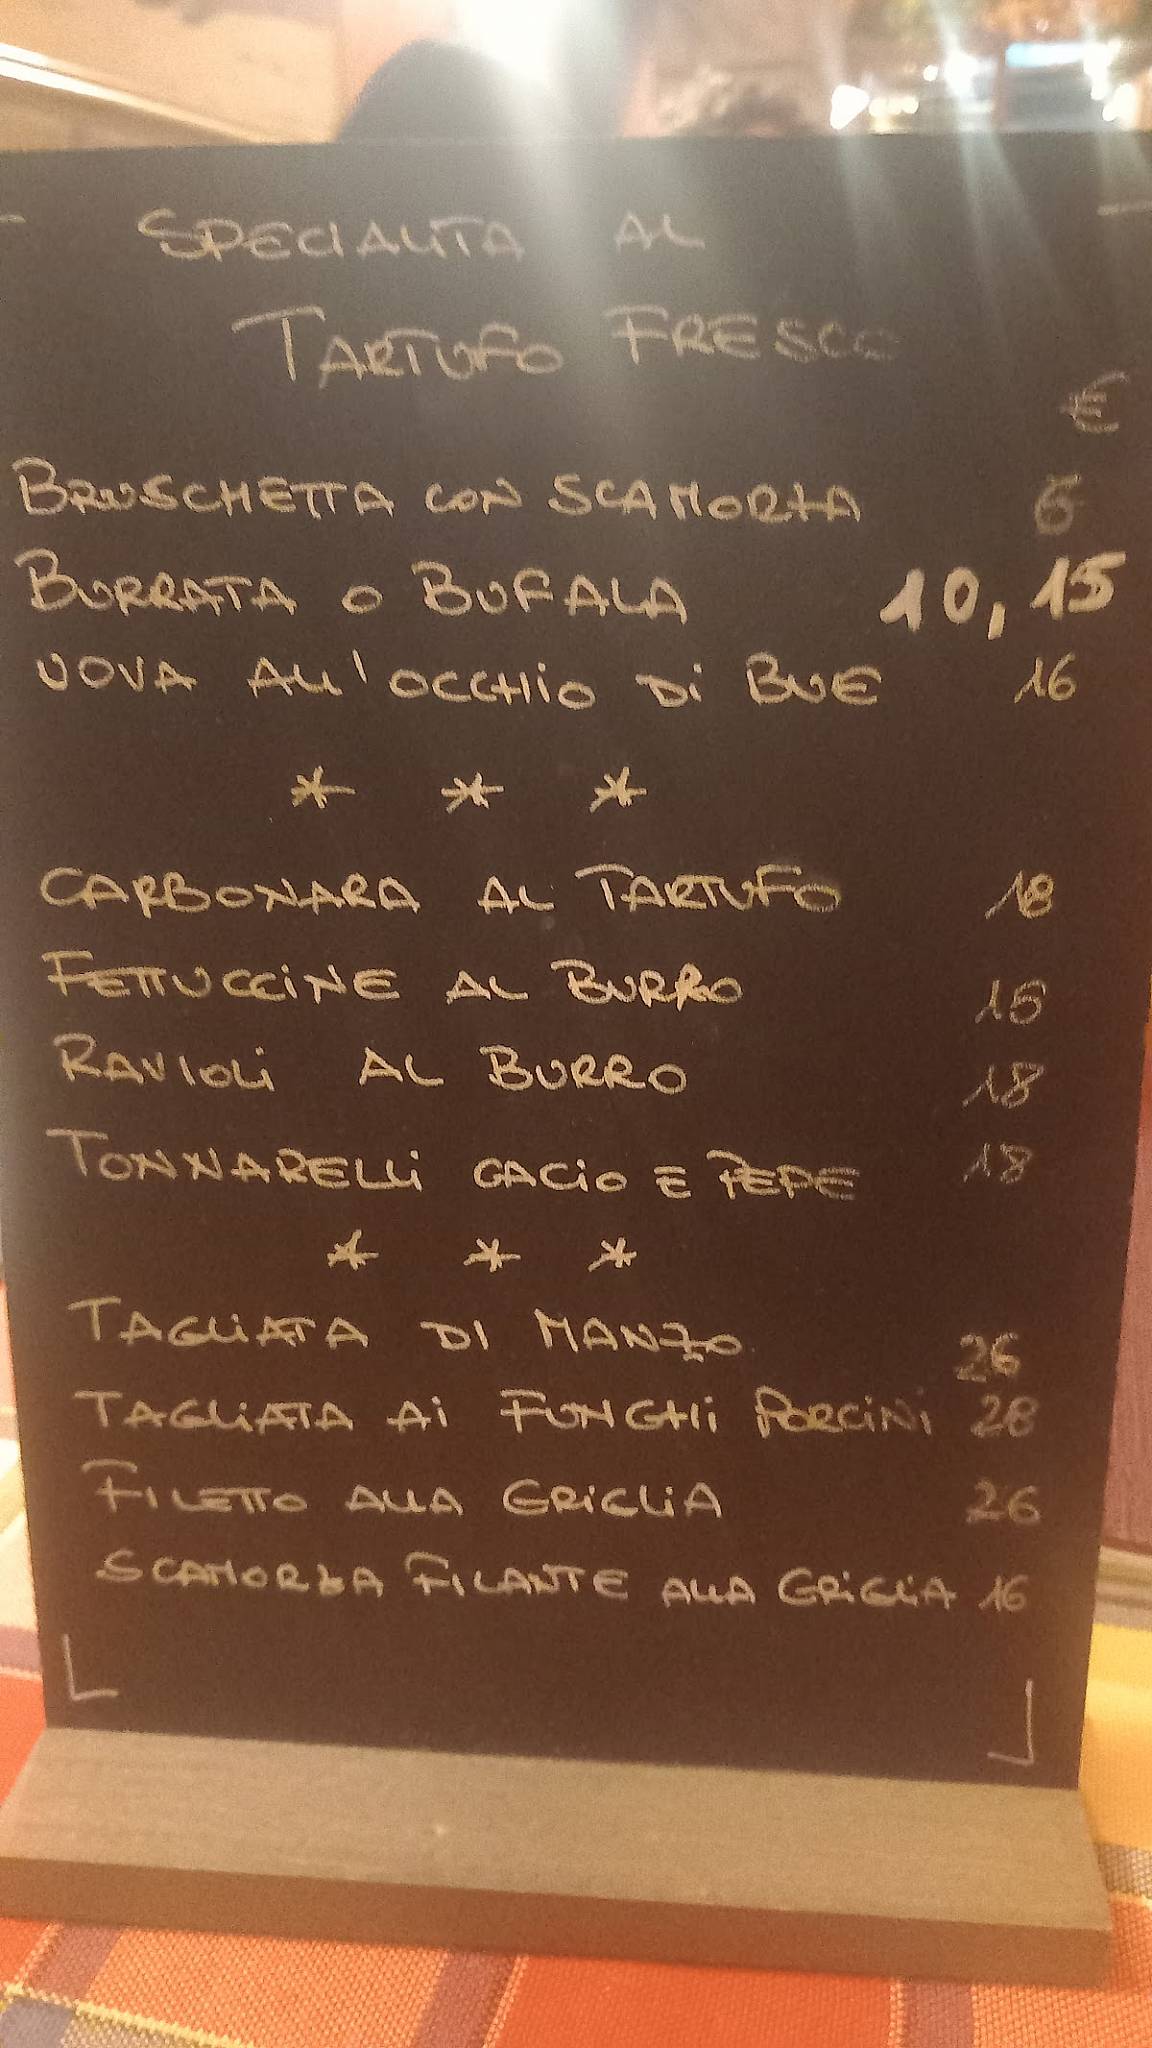 SPECIALITA AL
TARTUFO FRESCO
€
BRUSCHETTA CON SCAMORZA 6
BURRATA O BUFALA 10,15
UOVA ALL'OCCHIO DI BUE 16
* * *
CARBONARA AL TARTUFO 18
FETTUCCINE AL BURRO 15
RAVIOLI AL BURRO 18
TONNARELLI CACIO E PEPE 18
* * *
TAGLIATA DI MANZO 26
TAGLIATA AI FUNGHI PORCINI 28
FILETTO ALLA GRIGLIA 26
SCAMORZA FILANTE ALLA GRIGLIA 16